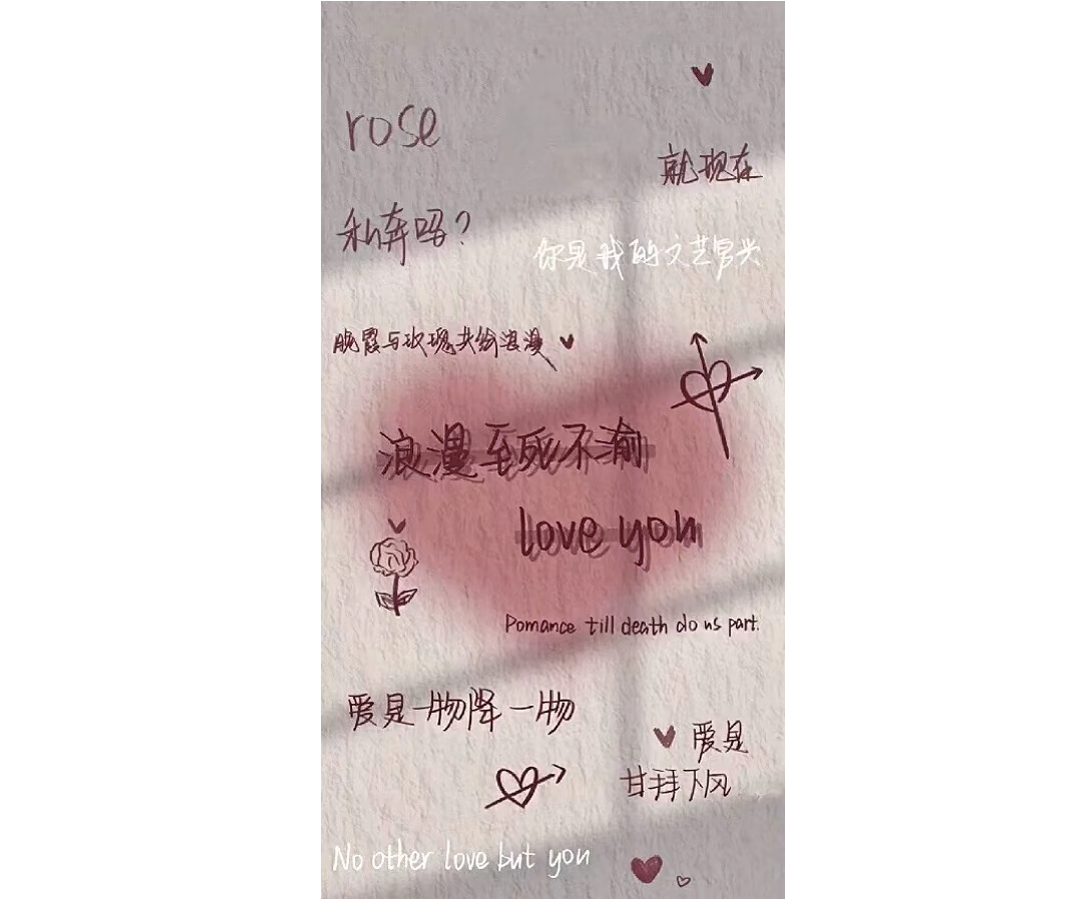 rose
就现在
私奔吗?
你是我的文艺复兴
晚霞与玫瑰共绘浪漫
浪漫至死不渝
love you
Pomance till death do us part.
爱是一物降一物
爱是
甘拜下风
No other love but you